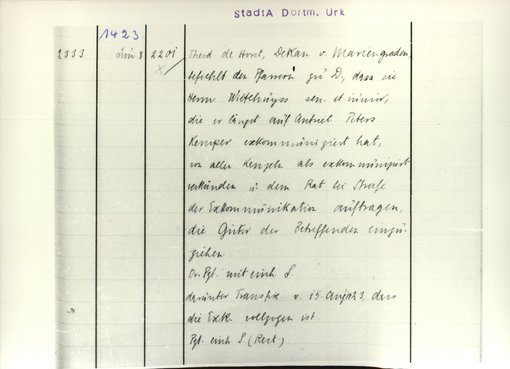 StadtA Dortm. Urk
1423
2333 Juni 3 2201 Theod. de Horst, Dekan v. Mariengraden,
befiehlt den Pfarrern zu D, dass sie
Herm Wistelhuyss sen. et minor,
die er längst auf Antrag Peters
Kemper exkommuniziert hat,
von allen Kanzeln als exkommuniziert
verkünden u. dem Rat bei Strafe
der Exkommunikation auftragen,
die Güter der Betreffenden einzu-
ziehen.
Or. Pgt. mit einh. S
darunter Transfix v. 15. Aug. 1423, dass
die Exk. vollzogen ist
Pgt. einh. S (Rest)